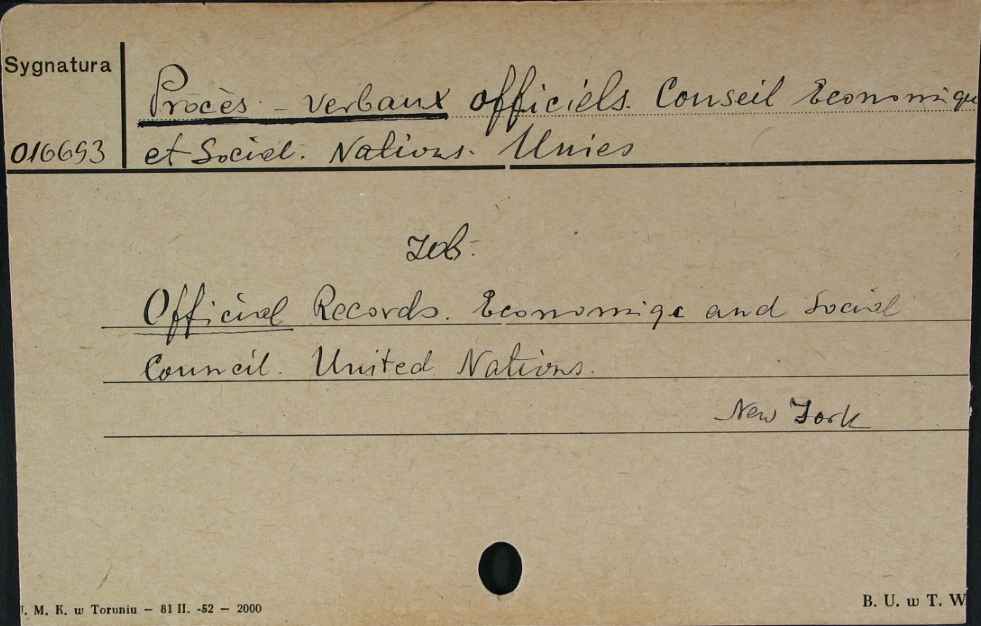 Sygnatura
Procès-verbaux officiels. Conseil Economique
016693
et Social. Nations. Unies
Zob.
Official Records. Economiqe and Social
Council. United Nations.
New York
. M. K. w Toruniu — 81 II. -52 — 2000
B. U. w T. W